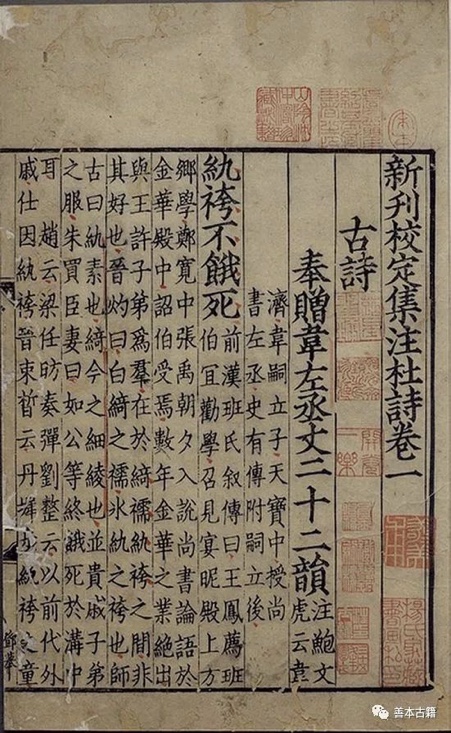 新刊校定集注杜詩卷一
古詩
奉贈韋左丞丈二十二韻
汪鮑文
虎云韋
濟韋嗣立子天寶中授尚
書左丞史有傳附嗣立後
紈袴不餓死
前漢班氏叙傳曰王鳳薦班
伯冝勸學召見宴昵殿上方
鄉學鄭寬中張禹朝夕入說尚書論語於
金華殿中詔伯受焉數年金華之業絕出
與王許子弟爲羣在於綺襦紈袴之間非
其好也晉灼曰白綺之襦氷紈之袴也師
古曰紈素也綺今之細綾也並貴戚子弟
之服朱買臣妻曰如公等終餓死於溝中
耳 趙云梁任昉奏彈劉整云以前代外
戚仕因紈袴晉束晳云丹墀步紈袴之童
善本古籍